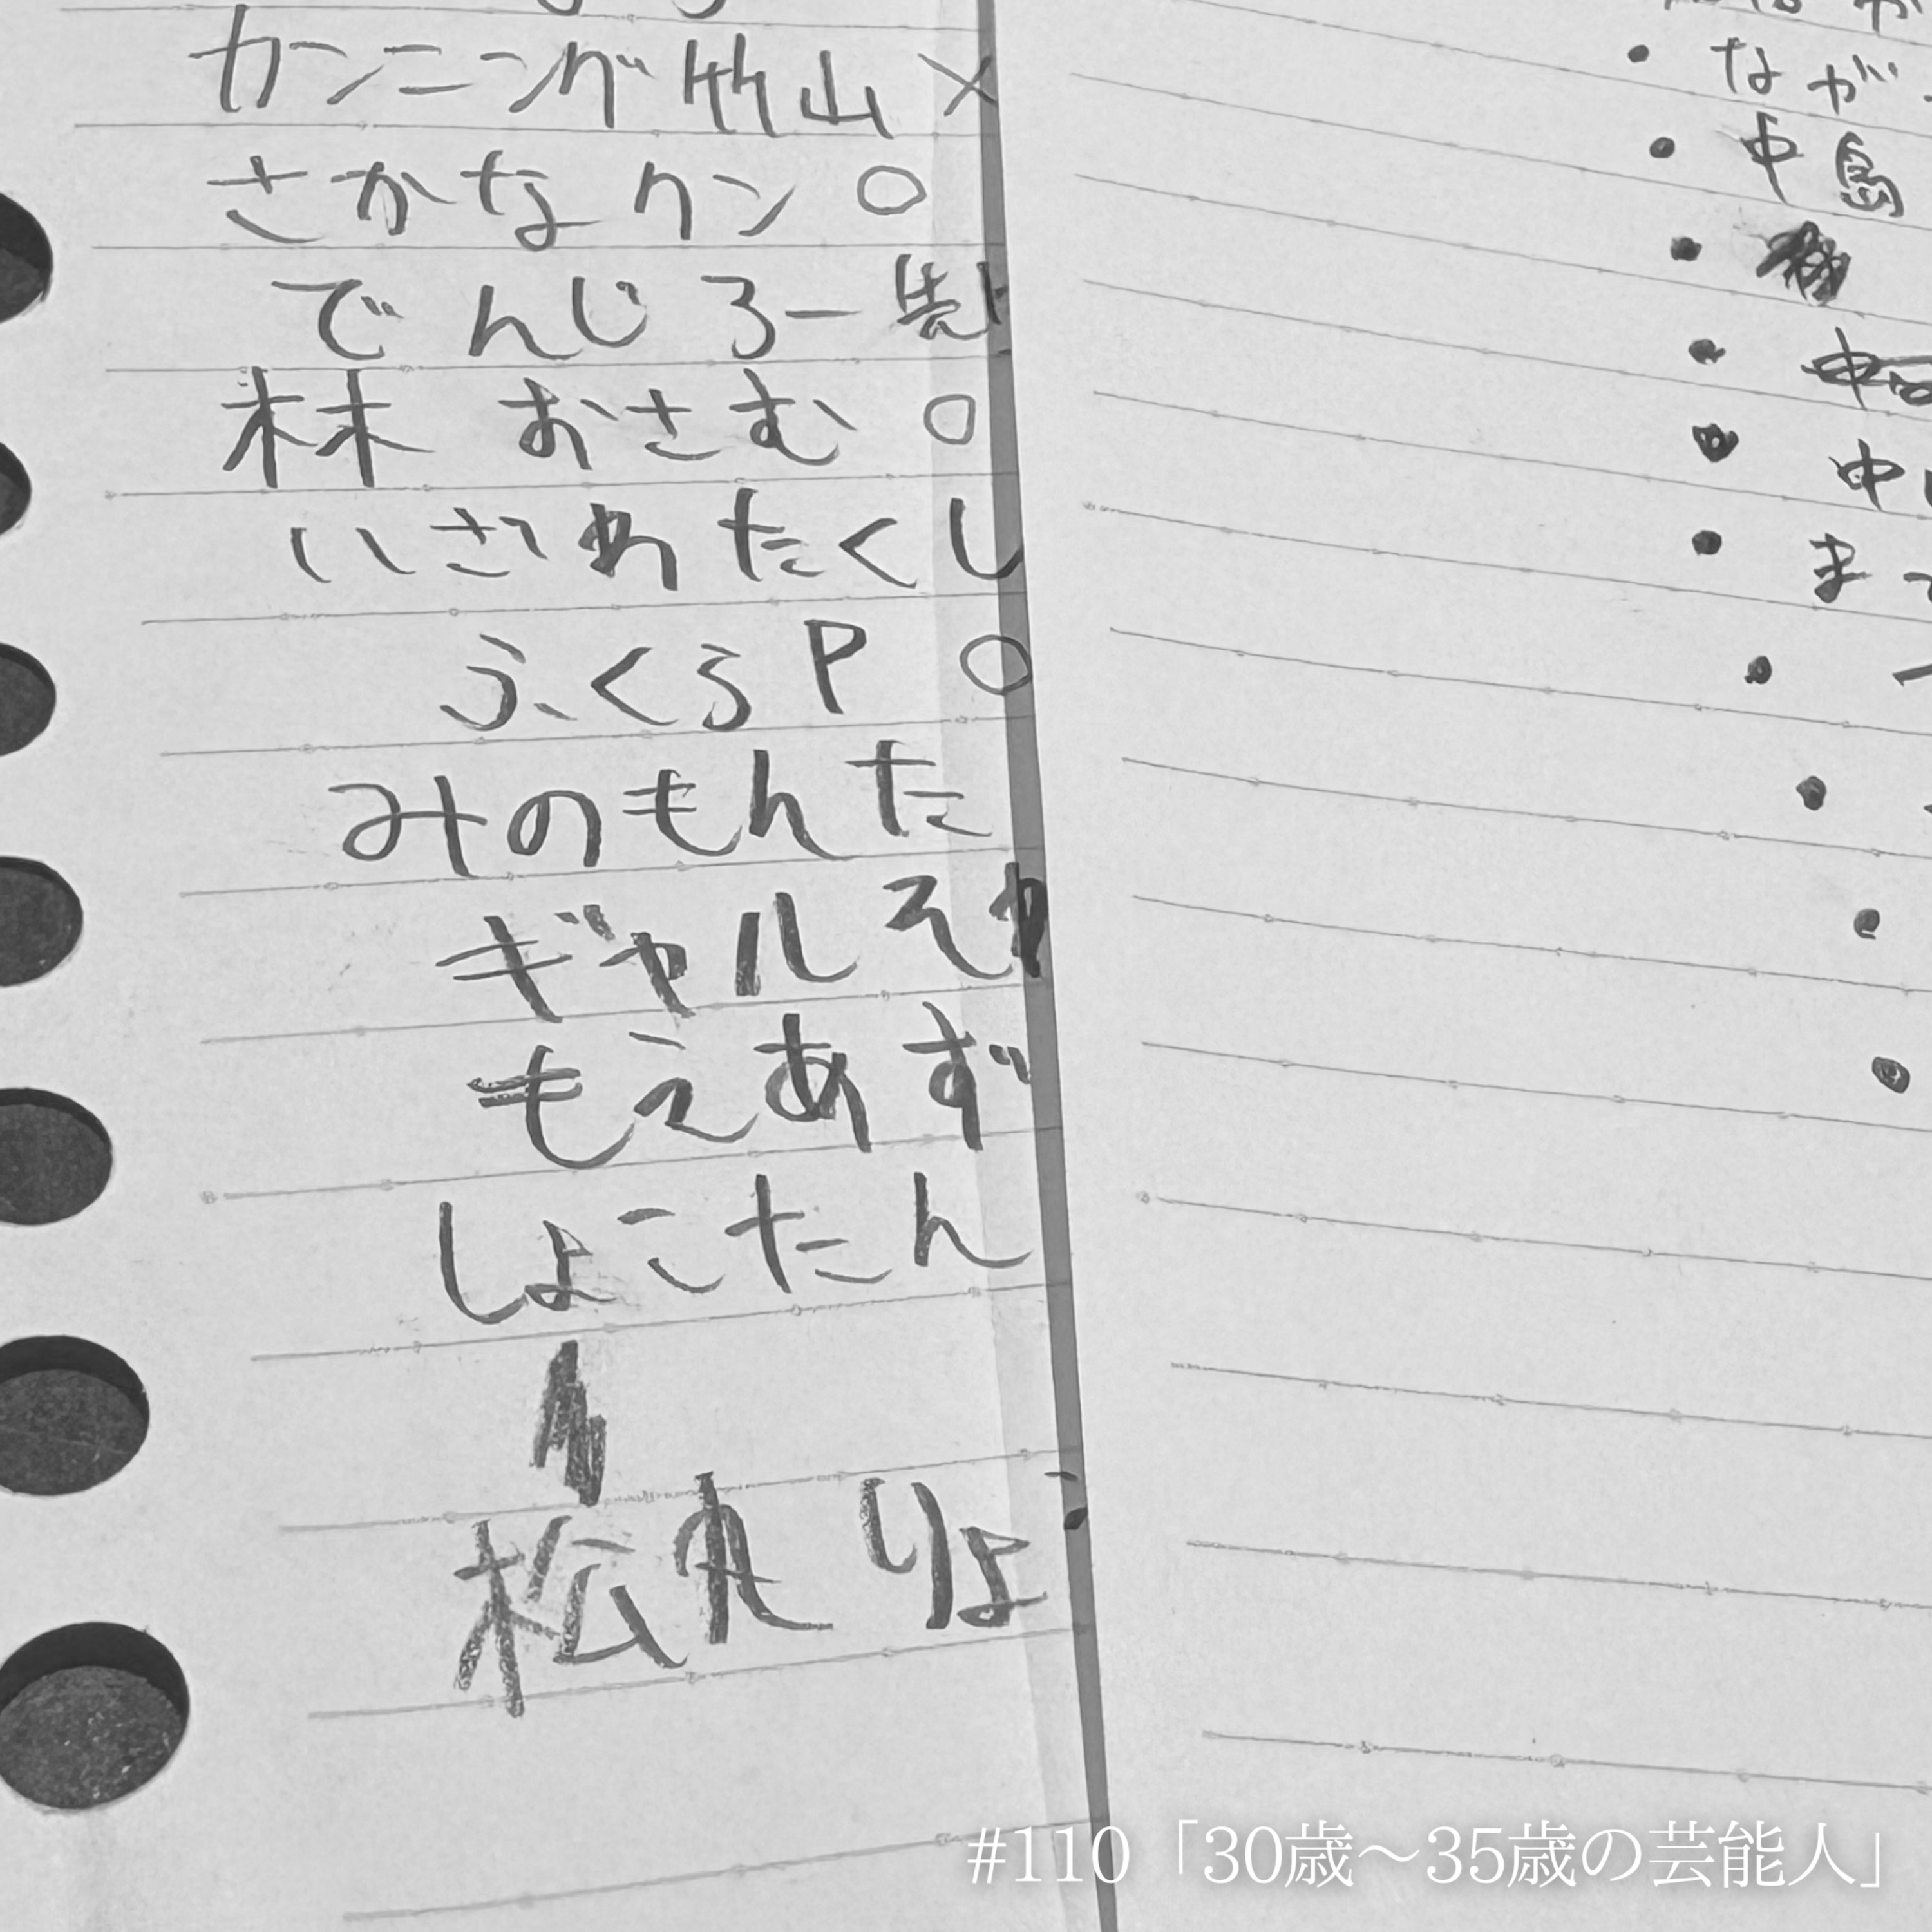 カンニング竹山 ×
さかなクン ○
でんじろー先
林 おさむ ○
いざわたくし
ふくらP ○
みのもんた
ギャルそ
もえあず
しょこたん
松丸りょ
・なが
・中島
・中
・ま
#110「30歳〜35歳の芸能人」